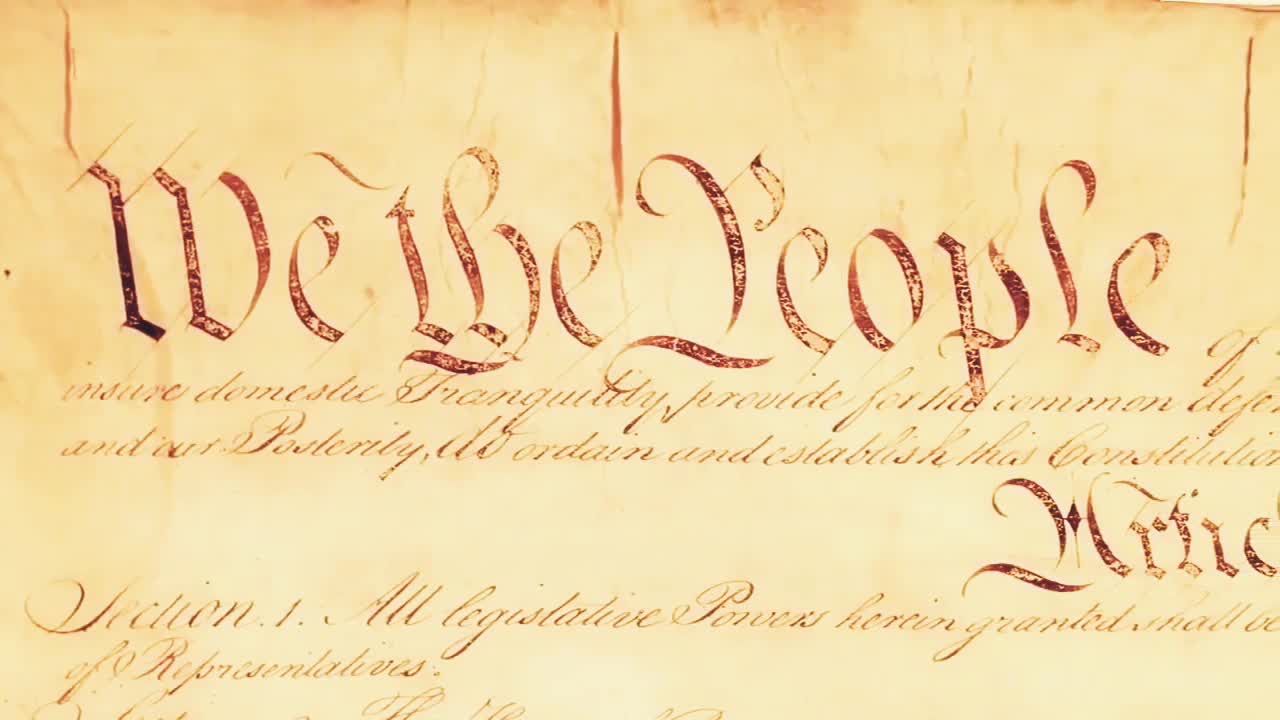 We the People
of
insure domestic Tranquility, provide for the common defen
and our Posterity, do ordain and establish this Constitution
Artic
Section. 1. All legislative Powers herein granted shall be
of Representatives.